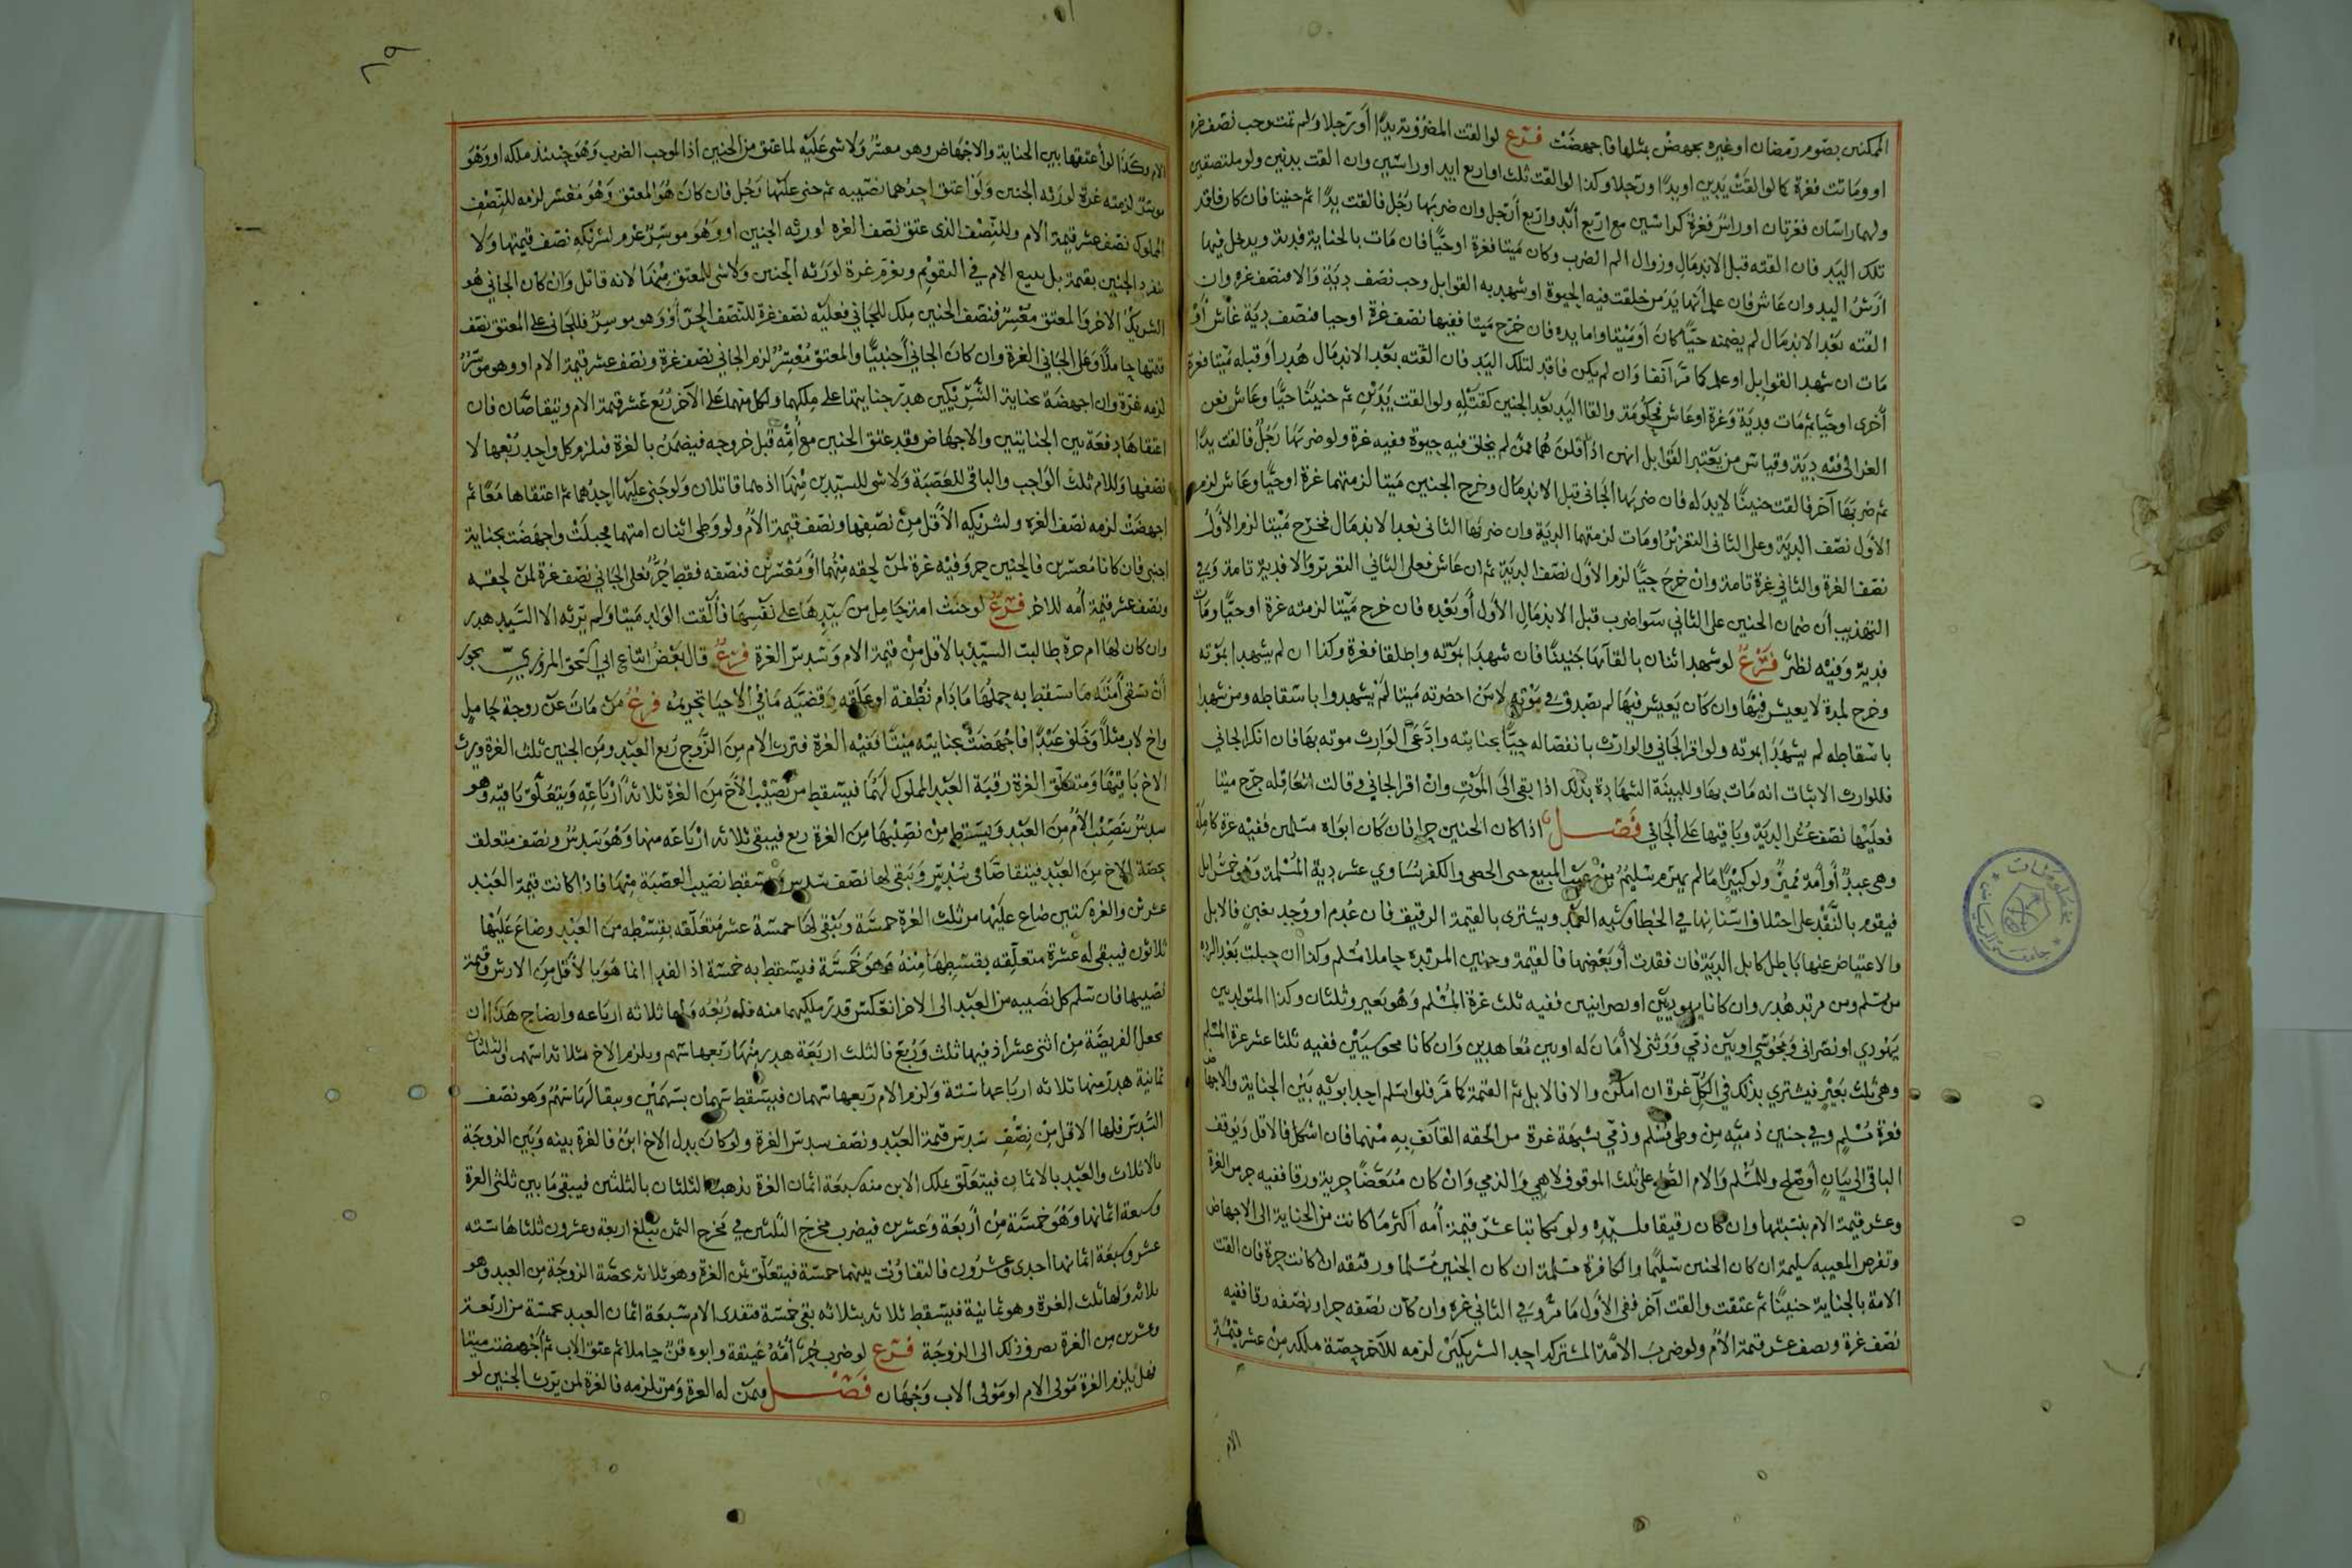 الممكنين بصوم رمضان او غيره بجهض بمثلها فاجهضت فرع لو القت المضروبة يدًا أو رجلا ولم تمت وجب نصف غرة
او وماتت فغرة كما لو القت يدين او يدًا ورجلا وكذا لو القت ثلث او اربع ايد او راسين وان القت بدنين ولو ملتصقين
ولهما راسان فغرتان او راس فغرة كراسين مع اربع أيد واربع أرجل وان ضربها رجل فالقت يدًا ثم جنينا فان كان فاقد
تلك اليد فان القته قبل الاندمال وزوال الم الضرب وكان ميتا فغرة او حيًا فان مات بالجناية فدية ويدخل فيها
أرش اليد وان عاش فان علم أنها يد من خلقت فيه الحيوة او شهد به القوابل وجب نصف دية والا فنصف غرة وان
القته بعد الاندمال لم يضمنه حيًا كان أو ميتا واما يده فان خرج ميتا ففيها نصف غرة او حيا فنصف دية عاش أو
مات ان شهد القوابل او علم كما مر آنفا وان لم يكن فاقد لتلك اليد فان القته بعد الاندمال هدر أو قبله ميتا فغرة
أخرى او حيًا ثم مات فدية وغرة او عاش فحكومة والقا اليد بعد الجنين كقتله ولو القت يدين ثم جنينًا حيًا وعاش فعن
الغزالي فيه دية وقياس من يعتبر القوابل انهن اذا قلن هما ممن لم يخلق فيه حيوة ففيه غرة ولو ضربها رجل فالقت يدًا
ثم ضربها آخر فالقت جنينًا لا يد له فان ضربها الجاني قبل الاندمال وخرج الجنين ميتا لزمتهما غرة او حيًا وعاش لزم
الأول نصف الدية وعلى الثاني التعزير أو مات لزمتهما الدية وان ضربها الثاني بعد الاندمال فخرج ميتا لزم الأول
نصف الغرة والثاني غرة تامة وان خرج حيًا لزم الأول نصف الدية ثم ان عاش فعلى الثاني التعزير والا فدية تامة وفي
التهذيب أن ضمان الجنين على الثاني سوا ضرب قبل الاندمال الأول أو بعده فان خرج ميتا لزمته غرة او حيًا ومات
فدية وفيه نظر فرع لو شهد اثنان بالقائها جنينًا فان شهدا بموته واطلقا فغرة وكذا ان لم يشهدا بموته
وخرج لمدة لا يعيش فيها وان كان يعيش فيها لم تصدق في موته لاسن احضرته ميتا لم يشهدوا باسقاطه ومن شهدا
باسقاطه لم يشهدا بموته ولو اقر الجاني والوارث بانفصاله حيًا بجنايته وادعى الوارث موته بها فان انكر الجاني
فللوارث الاثبات انه مات بها وللبينة الشهادة بذلك اذا بقي الى الموت وان اقر الجاني وقالت العاقلة خرج ميتا
فعليها نصف عشر الدية وباقيها على الجاني فصل اذا كان الجنين حرا فان كان ابواه مسلمين ففيه غرة كاملة
وهي عبد أو أمة مميز ولو كبيرًا ما لم يهرم سليم من عيب المبيع حتى الخصى والكفر تساوي عشر دية المسلمة وهو خمس ابل
فيقوم بالنقد على اختلاف اسنانها في الخطا وشبه العمد ويشترى بالقيمة الرقيق فان عدم او وجد بغبن فالابل
والاعتياض عنها باطل كابل الدية فان فقدت أو بعضها فالقيمة وجنين المرتدة حاملا مسلم وكذا ان حبلت بعد الردة
من مسلم ومن مرتد هدر وان كانا يهوديين او نصرانيين ففيه ثلث غرة المسلم وهو بعير وثلثان وكذا المتولد بين
يهودي او نصراني ومجوسي او بين ذمي ووثني لا أمان له او بين معاهدين وان كانا مجوسيين ففيه ثلثا عشر غرة المسلم
وهي ثلث بعير فيشتري بذلك في الكل غرة ان امكن والا فالابل ثم القيمة كما مر فلو اسلم احد ابويه بين الجناية والاجهاض
فغرة مسلم وفي جنين ذمية من وطى مسلم وذمي بشبهة غرة من الحقه القائف به منهما فان اشكل فالاقل ويوقف
الباقي الى بيان أو صلح وللمسلم والام الصلح على ثلث الموقوف لا هي والذمي وان كان مبعضًا حرية ورقا ففيه جر من الغرة
وعشر قيمة الام بنسبتها وان كان رقيقا فلسيده ولو مكاتبا عشر قيمة أمه أكثر ما كانت من الجناية الى الاجهاض
وتفرض المعيبة سليمة ان كان الجنين سليمًا والكافرة مسلمة ان كان الجنين مسلما ورقيقه ان كانت حرة فان القت
الامة بالجناية جنينًا ثم عتقت والقت آخر ففي الأول ما مر وفي الثاني غرة وان كان نصفه حرا ونصفه رقا ففيه
نصف غرة ونصف عشر قيمة الأم ولو ضرب الأمة المشتركة احد الشريكين لزمه للآخر حصة ملكه من عشر قيمة
الام
الام وكذا لو أعتقها بين الجناية والاجهاض وهو معسر ولا شي عليه لما عتق من الجنين اذ الموجب الضرب وهو حينئذ ملكه او وهو
موسر لزمته غرة لورثة الجنين ولو اعتق احدهما نصيبه ثم جنى عليها رجل فان كان هو المعتق وهو معسر لزمه للنصف
المملوك نصف عشر قيمة الام وللنصف الذي عتق نصف الغرة لورثة الجنين او وهو موسر غرم لشريكه نصف قيمتها ولا
نفرد الجنين بقيمة بل يتبع الام في التقويم ويغرم غرة لورثة الجنين ولا شي للمعتق منها لانه قاتل وان كان الجاني هو
الشريك الآخر والمعتق معسر فنصف الجنين ملك للجاني فعليه نصف غرة للنصف الحر أو وهو موسر فللجاني على المعتق نصف
قيمتها حاملًا وعلى الجاني الغرة وان كان الجاني أجنبيًا والمعتق معسر لزم الجاني نصف غرة ونصف عشر قيمة الام او وهو موسر
لزمه غرة وان اجهضة بجناية الشريكين هدر جنايتهما على ملكهما ولكل منهما على الآخر ربع عشر قيمة الام ويتقاصان فان
اعتقاها دفعة بين الجنايتين والاجهاض فقد عتق الجنين مع أمه قبل خروجه فيضمن بالغرة فيلزم كل واحد ربعها لا
نصفها وللام ثلث الواجب والباقي للعصبة ولا شي للسيدين منها اذ هما قاتلان ولو جنى عليها احدهما ثم اعتقاها معًا ثم
اجهضت لزمه نصف الغرة ولشريكه الأقل من نصفها ونصف قيمة الأم ولو وطى اثنان امتهما فحبلت واجهضت بجناية
اجنبي فان كانا معسرين فالجنين حر وفيه غرة لمن لحقه منهما أو معسرين فنصفه فقط حر فعلى الجاني نصف غرة لمن لحقه
ونصف عشر قيمة أمه للاخر فرع لو جنت امة حامل من سيدها على نفسها فألقت الولد ميتا ولم يرثه الا السيد هدر
وان كان لها ام حرة طالبت السيد بالاقل من قيمة الام وسدس الغرة فرع قال بعض اتباع ابي اسحق المروزي يجوز
أن سقى أمته ما سقط به حملها ما دام نطفة او علقه وقضية ما في الاحيا تحريمه فرع من مات عن زوجة حامل
واخ لاب مثلًا وخلف عبدًا فاجهضت بجنايته ميتًا ففيه الغرة فترث الام من الزوج ربع العبد ومن الجنين ثلث الغرة ويرث
الاخ باقيها ومتعلق الغرة رقبة العبد المملوك لهما فيسقط من نصيب الأخ من الغرة ثلاثة أرباعه ويتعلق باقيه وهو
سدس بنصيب الأم من العبد ويسقط من نصيبها من الغرة ربع فيبقى ثلاثة ارباعه منها وهو سدس ونصف متعلق
بحصة الاخ من العبد فيتقاصا في سدس وتبقى لها نصف سدس وسقط نصيب العصبة منها فاذا كانت قيمة العبد
عشرين والغرة ستين ضاع عليها من ثلث الغرة خمسة وتبقى لها خمسة عشر متعلقه بقسطه من العبد وضاع عليها
ثلاثون فيبقى له عشرة متعلقه بقسطها منه وهو خمسة فيسقط به خمسة اذ الفدا انما هو بالأقل من الارش وقيمة
نصيبها فان سلم كل نصيبه من العبد الى الاخر انعكس قدر ملكيهما منه فله ربعه ولها ثلاثة ارباعه وايضاح هذا ان
تجعل الفريضة من اثنى عشر اذ فيها ثلث وربع فالثلث اربعة هدر منها ربعها سهم ويلزم الاخ ثلاثة اسهم والثلثان
ثمانية هدر منها ثلاثة ارباعها ستة ولزم الام ربعها سهمان فيسقط سهمان بسهمين ويبقا لها سهم وهو نصف
السدس فلها الاقل من نصف سدس قيمة العبد ونصف سدس الغرة ولو كان بدل الاخ ابن فالغرة بينه وبين الزوجة
بالاثلاث والعبد بالاثمان فيتعلق بملك الابن منه سبعة اثمان الغرة يذهب الثلثان بالثلثين فيبقى ما بين ثلثي الغرة
وسبعة اثمانها وهو خمسة من أربعة وعشرين فيضرب مخرج الثلثين في مخرج الثمن تبلغ اربعة وعشرون ثلثاها ستة
عشر وسبعة اثمانها احدى وعشرون فالتفاوت بينهما خمسة فيتعلق ثمن الغرة وهو ثلاثة بحصة الزوجة من العبد وهو
ثلاثة ولها ثلث الغرة وهو ثمانية فيسقط ثلاثة بثلاثة بقي خمسة فتفدى الام سبعة اثمان العبد بخمسة من اربعة
وعشرين من الغرة يصرف ذلك الى الزوجة فرع لو ضرب حر أمه عتيقة وابوه قن حاملا ثم عتق الاب ثم أجهضت ميتا
فهل يلزم الغرة مولى الام او مولى الاب وجهان فصل فيمن له الغرة ومن تلزمه فالغرة لمن يرث الجنين لو